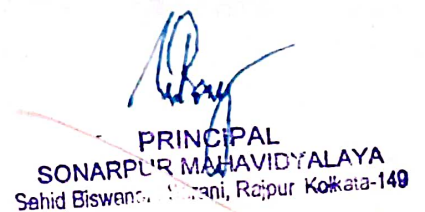 PRINCIPAL
SONARPUR MAHAVIDYALAYA
Sahid Rajpur Kolkata-149